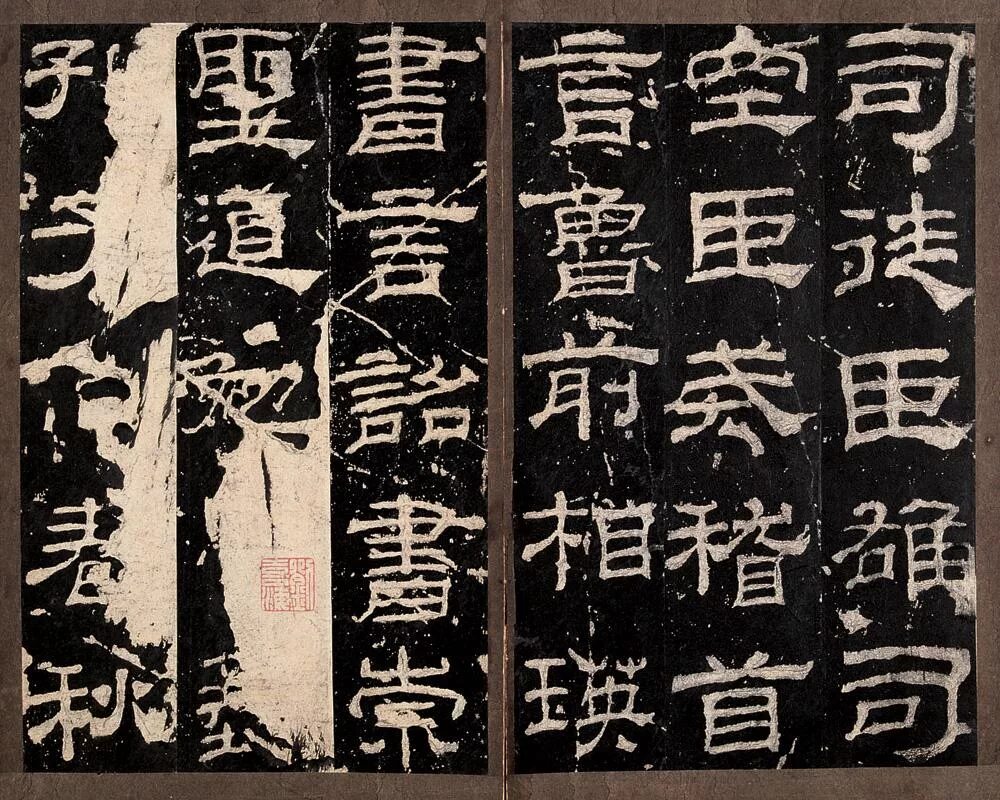 司徒臣雄司
空臣戒稽首
言魯前相瑛
書言詔書崇
聖道勉藝
孔子春秋